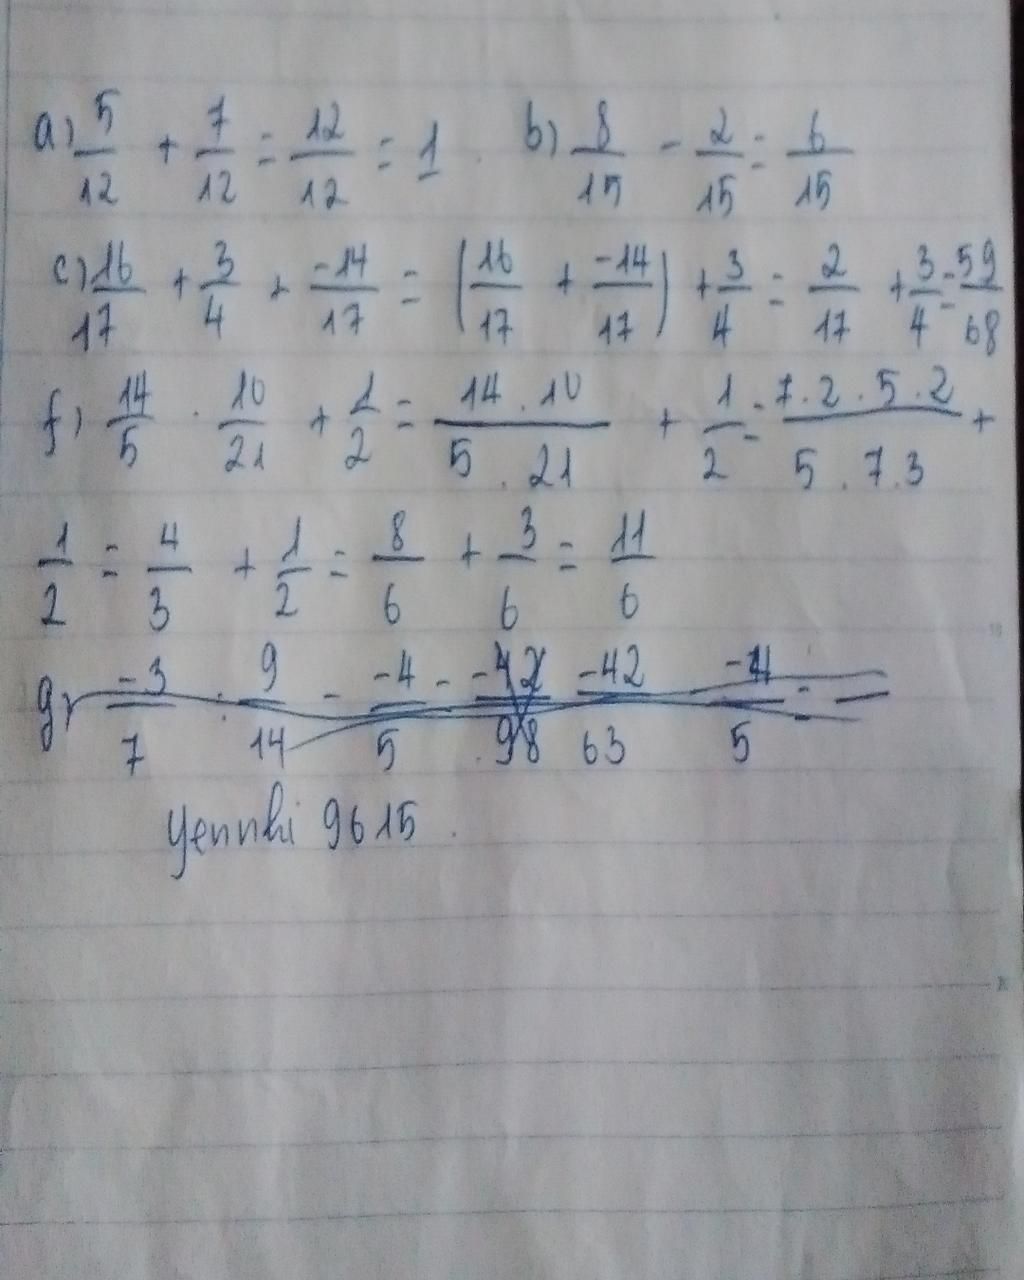 a) 5/12 + 7/12 = 12/12 = 1 . b) 8/15 - 2/15 = 6/15
c) 16/17 + 3/4 + -14/17 = (16/17 + -14/17) + 3/4 = 2/17 + 3/4 = 59/68
f) 14/5 . 10/21 + 1/2 = 14.10/5.21 + 1/2 = 7.2.5.2/5.7.3 +
1/2 = 4/3 + 1/2 = 8/6 + 3/6 = 11/6
g) -3/7 : 9/14 - -4/5 = -42/98 -42/63 - -4/5 =
Yennhi 9615 .